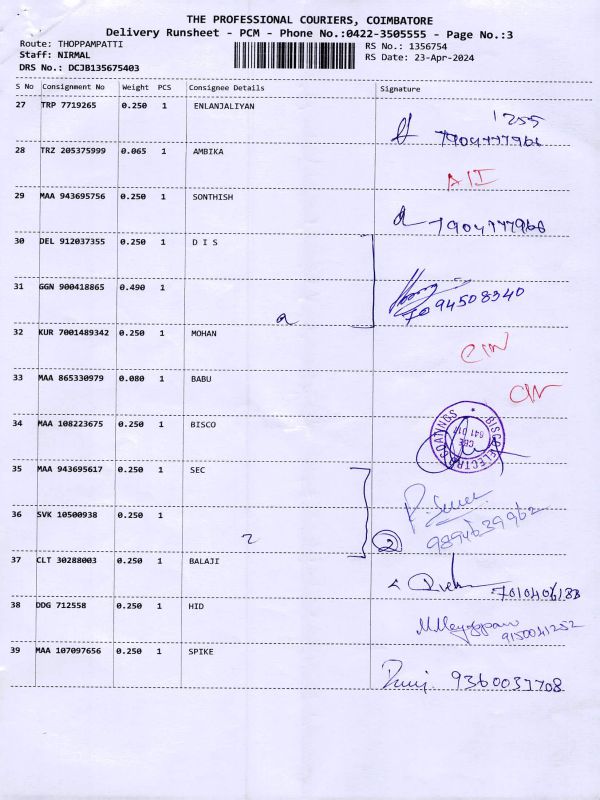 THE PROFESSIONAL COURIERS, COIMBATORE
Delivery Runsheet - PCM - Phone No.:0422-3505555 - Page No.:3
Route: THOPPAMPATTI RS No.: 1356754
Staff: NIRMAL RS Date: 23-Apr-2024
DRS No.: DCJB135675403
S No Consignment No Weight PCS Consignee Details Signature
27 TRP 7719265 0.250 1 ENLANJALIYAN
1255
7904777966
28 TRZ 205375999 0.065 1 AMBIKA
29 MAA 943695756 0.250 1 SONTHISH
7904777966
30 DEL 912037355 0.250 1 D I S
31 GGN 900418865 0.490 1
7094508340
32 KUR 7001489342 0.250 1 MOHAN
33 MAA 865330979 0.080 1 BABU
34 MAA 108223675 0.250 1 BISCO
BISCO ELECTRO COATINGS
CBE
641 017
35 MAA 943695617 0.250 1 SEC
36 SVK 10500938 0.250 1
2 2
9894639962
37 CLT 30288003 0.250 1 BALAJI
38 DDG 712558 0.250 1 HID
9150041252
39 MAA 107097656 0.250 1 SPIKE
9360037708